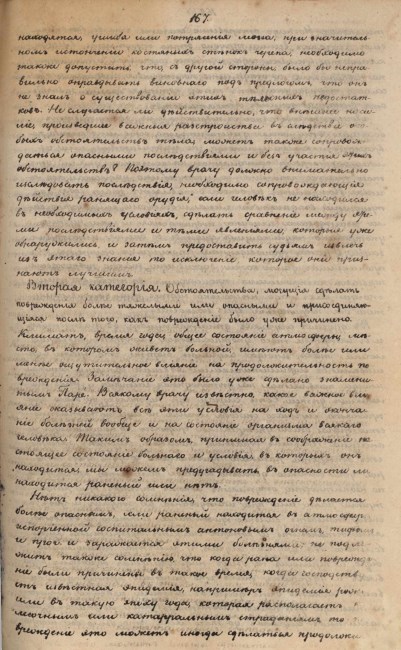 167.
находятся, ушиба или потрясения мозга, при значитель-
номъ истонченіи костяныхъ стѣнокъ черепа, необходимо
также допустить, что съ другой стороны было бы непра-
вильно оправдывать виновнаго подъ предлогомъ, что онъ
не зналъ о существованіи этихъ тѣлесныхъ недостат-
ковъ. Не случается ли дѣйствительно, что внѣшнее наси-
ліе, произведшее важныя разстройства въ слѣдствіе осо-
быхъ обстоятельствъ тѣла, можетъ также сопровож-
даться опасными послѣдствіями и безъ участія этихъ
обстоятельствъ? Поэтому врачу должно внимательно
изслѣдовать послѣдствія, необходимо сопровождающія
дѣйствіе ранящаго орудія, если человѣкъ не находился
въ необычныхъ условіяхъ, сдѣлать сравненіе между эти-
ми послѣдствіями и тѣми явленіями, которыя уже
обнаружились, и затѣмъ предоставить судьямъ извлечь
изъ этого знанія то исключеніе, которое они приз-
наютъ лучшимъ.
Вторая категорія. Обстоятельства, могущія сдѣлать
поврежденія болѣе тяжелыми или опасными и присоединяю-
щіяся послѣ того, какъ поврежденіе было уже причинено.
Климатъ, время года, общее состояніе атмосферы, мѣ-
сто, въ которомъ живетъ больной, имѣютъ болѣе или
менѣе ощутительное вліяніе на продолжительность по-
врежденія. Замѣчаніе это было уже сдѣлано знамени-
тымъ Паре. Всякому врачу извѣстно, какое важное влі-
яніе оказываютъ всѣ эти условія на ходъ и оконча-
ніе болѣзней вообще и на состояніе организма всякаго
человѣка. Такимъ образомъ, принимая въ соображеніе на-
стоящее состояніе больнаго и условія въ которыхъ онъ
находится, мы можемъ предугадывать, въ опасности ли
находится раненый или нѣтъ.
Нѣтъ никакого сомнѣнія, что поврежденіе дѣлается
болѣе опаснымъ, если раненый находится въ атмосферѣ
испорченной госпитальнымъ антоновымъ огнемъ, тифомъ
и проч. и заражается этими болѣзнями; не подле-
житъ также сомнѣнію, что когда рана или поврежде-
ніе были причинены въ такое время, когда господству-
етъ извѣстная эпидемія, напримѣръ эпидемія рожи
или въ такую эпоху года, которая располагаетъ къ
легочнымъ или катарральнымъ страданіямъ, то по-
врежденіе это можетъ иногда сдѣлаться продолжи-